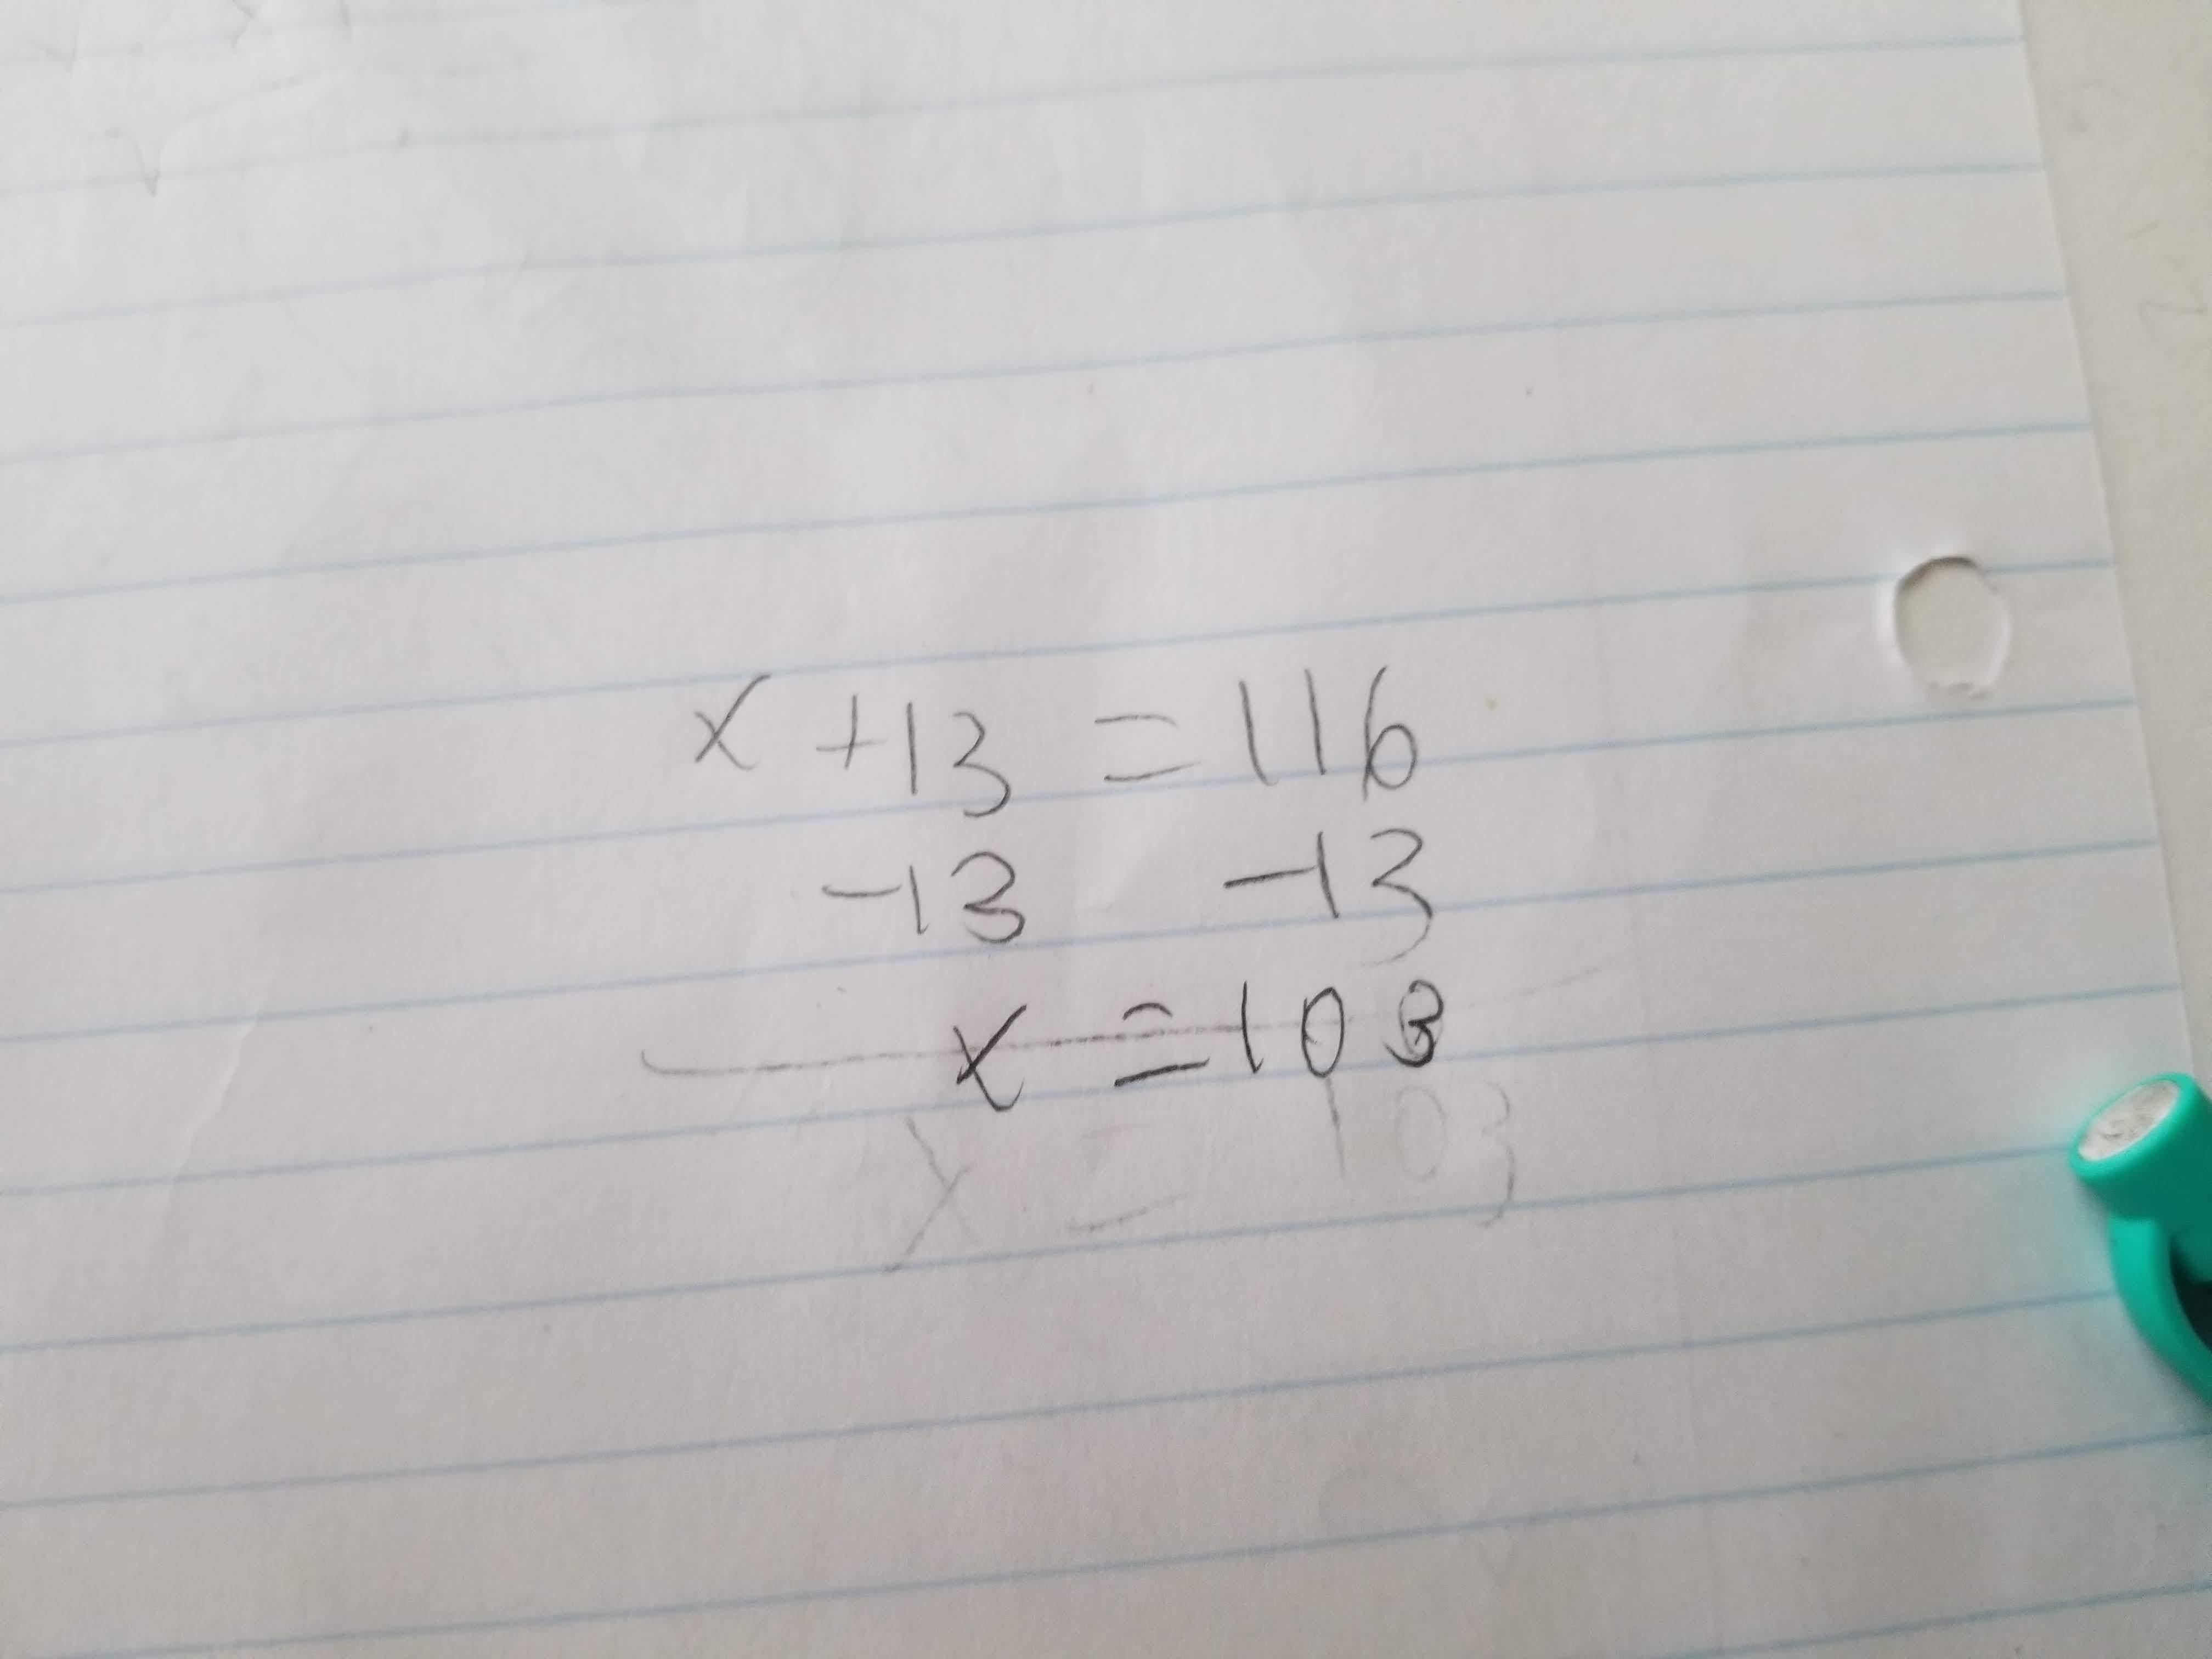 x + 13 = 116
-13 -13
x = 103
x = 103